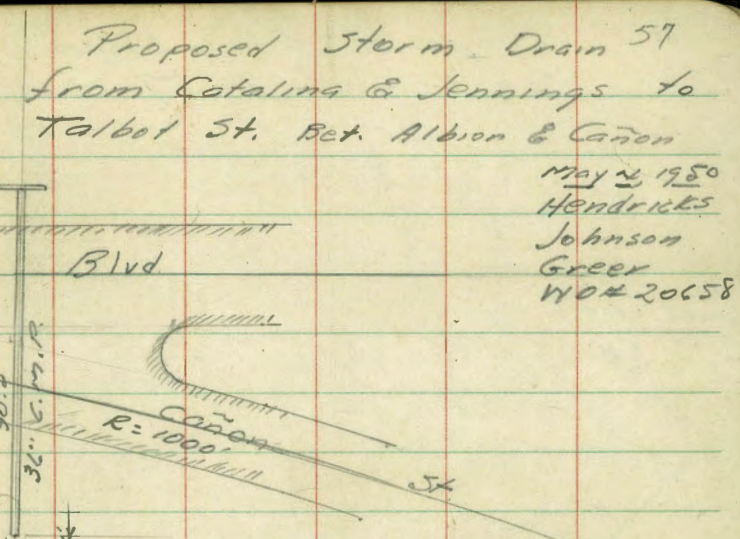 Proposed Storm Drain 57
from Catalina & Jennings to
Talbot St. Bet. Albion & Cañon
May 1950
Hendricks
Johnson
Greer
WO# 20658
Blvd
36" C.M.P.
Cañon
R=1000'
St.